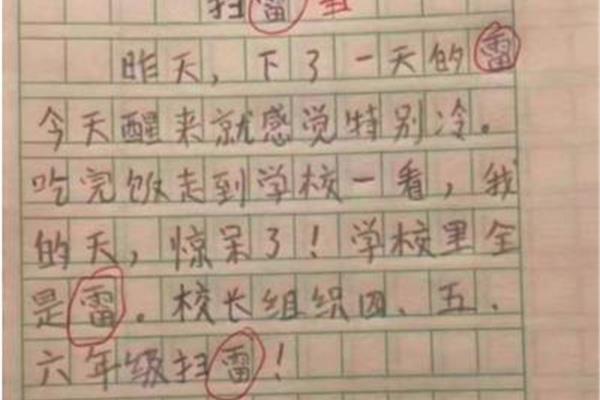 扫雷
昨天，下了一天的雷
今天醒来就感觉特别冷。
吃完饭走到学校一看，我
的天，惊呆了！学校里全
是雷。校长组织四、五、
六年级扫雷！